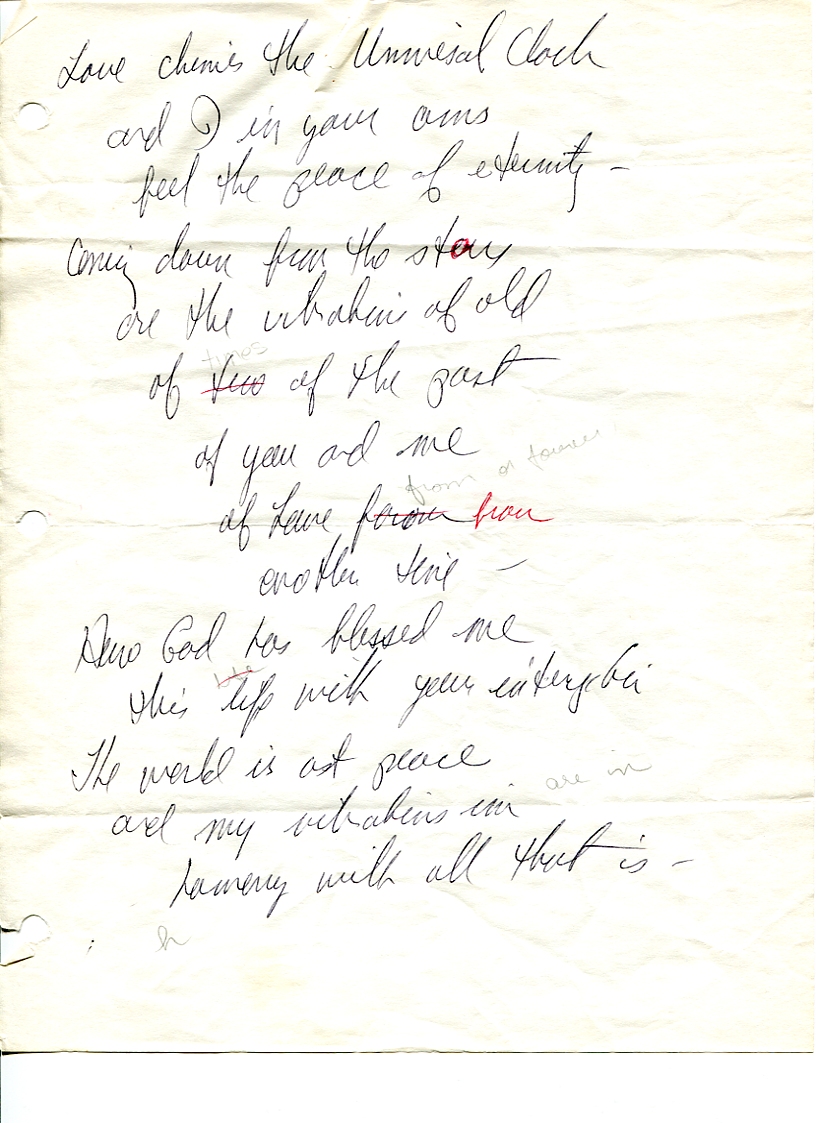 Love chimes the Universal Clock
and I in your arms
feel the peace of eternity -
Coming down from the stars
are the vibrations of old
times
of of the past
of you and me
from or forever
of Love from
another time -
God has blessed me
this life with your
The world is at peace
are in
and my vibrations in
harmony with all that is -
h